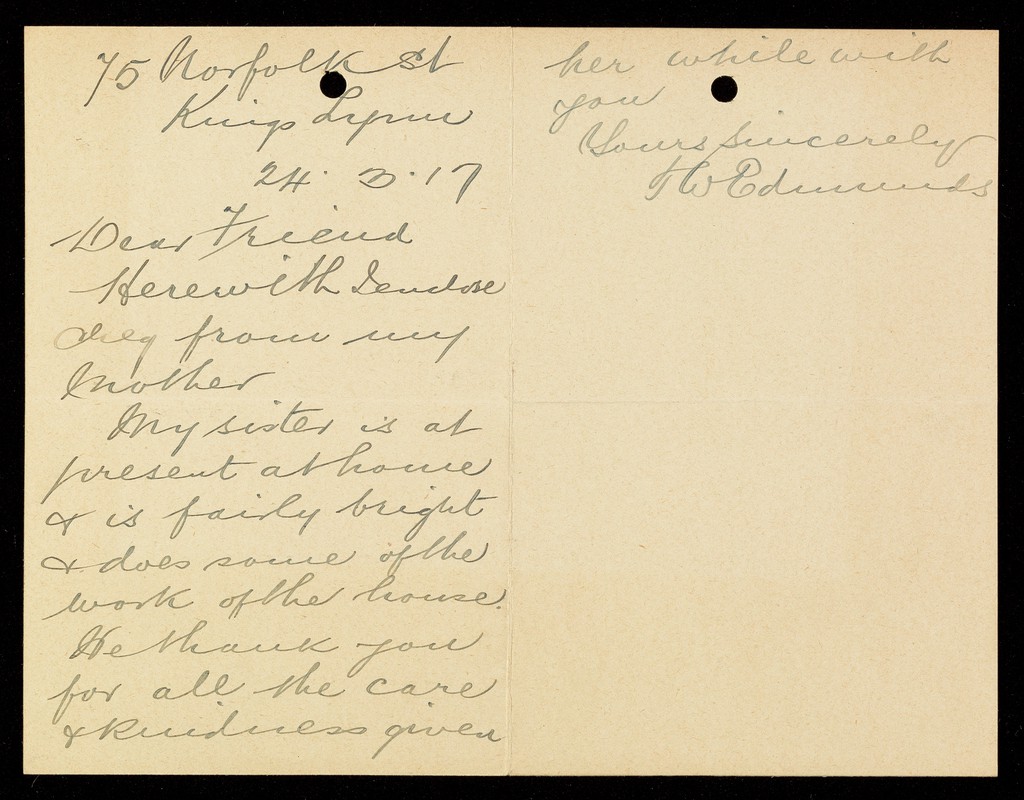 75 Norfolk St
Kings Lynn
24. 3. 17
Dear Friend
Herewith I enclose
cheq from my
Mother
My sister is at
present at home
& is fairly bright
& does some of the
work of the house.
We thank you
for all the care
& kindness given
her while with
you
Yours Sincerely
F W Edmunds